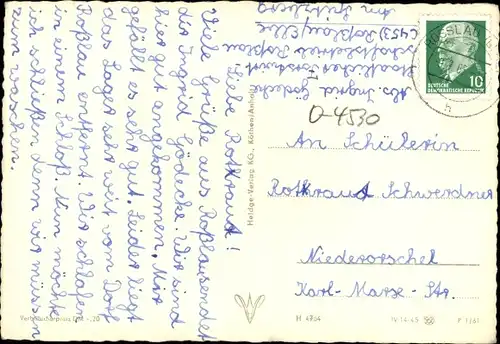 Liebe Rotkraut!
Viele Grüße aus Roßlau sendet
dir Ingrid Gödecke. Wir sind
hier gut angekommen. Mir
gefällt es sehr gut. Leider liegt
das Lager sehr weit vom Dorf
Roßlau entfernt. Wir schlafen
in einem Schloß. Nun möchte
ich schließen denn wir müssen
zum waschen.
Abs. Ingrid Gödecke
Staatlicher Forstwirt-
schaftsbetrieb Roßlau
(453) Roßlau/Elbe
Am
ROSSLAU
10
DEUTSCHE
DEMOKRATISCHE REPUBLIK
h
O-4530
An Schülerin
Rotkraut Schwerdner
Niederorschel
Karl-Marx-Str.
Heldge-Verlag KG., Köthen/Anhalt
Verbraucherpreis DM -,20
M 4764
IV-14-45
P 1/61